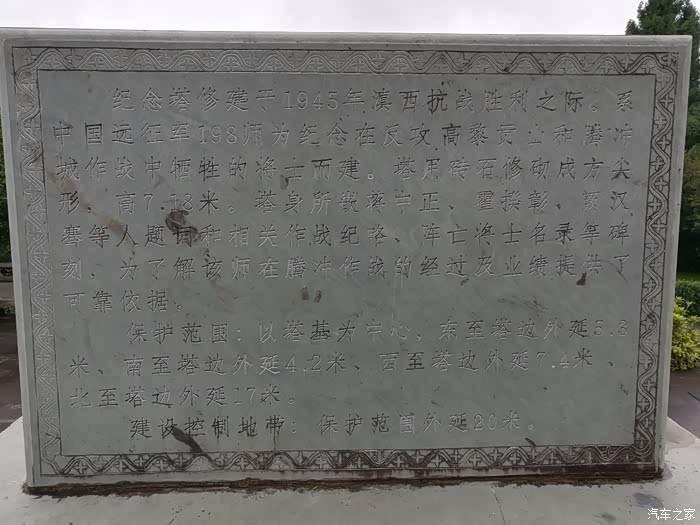 纪念塔修建于1945年滇西抗战胜利之际。系
中国远征军198师为纪念在反攻高黎贡山和腾冲
城作战中牺牲的将士而建。塔用砖石修砌成方尖
形，高7.18米。塔身所嵌蒋中正、霍揆彰、
塞等人题词和相关作战纪略、阵亡将士名录等碑
刻，为了解该师在腾冲作战的经过及业绩提供了
可靠依据。
保护范围：以塔基为中心，东至塔边外延5.3
米、南至塔边外延4.2米、西至塔边外延7.4米、
北至塔边外延17米。
建设控制地带：保护范围外延20米。
汽车之家